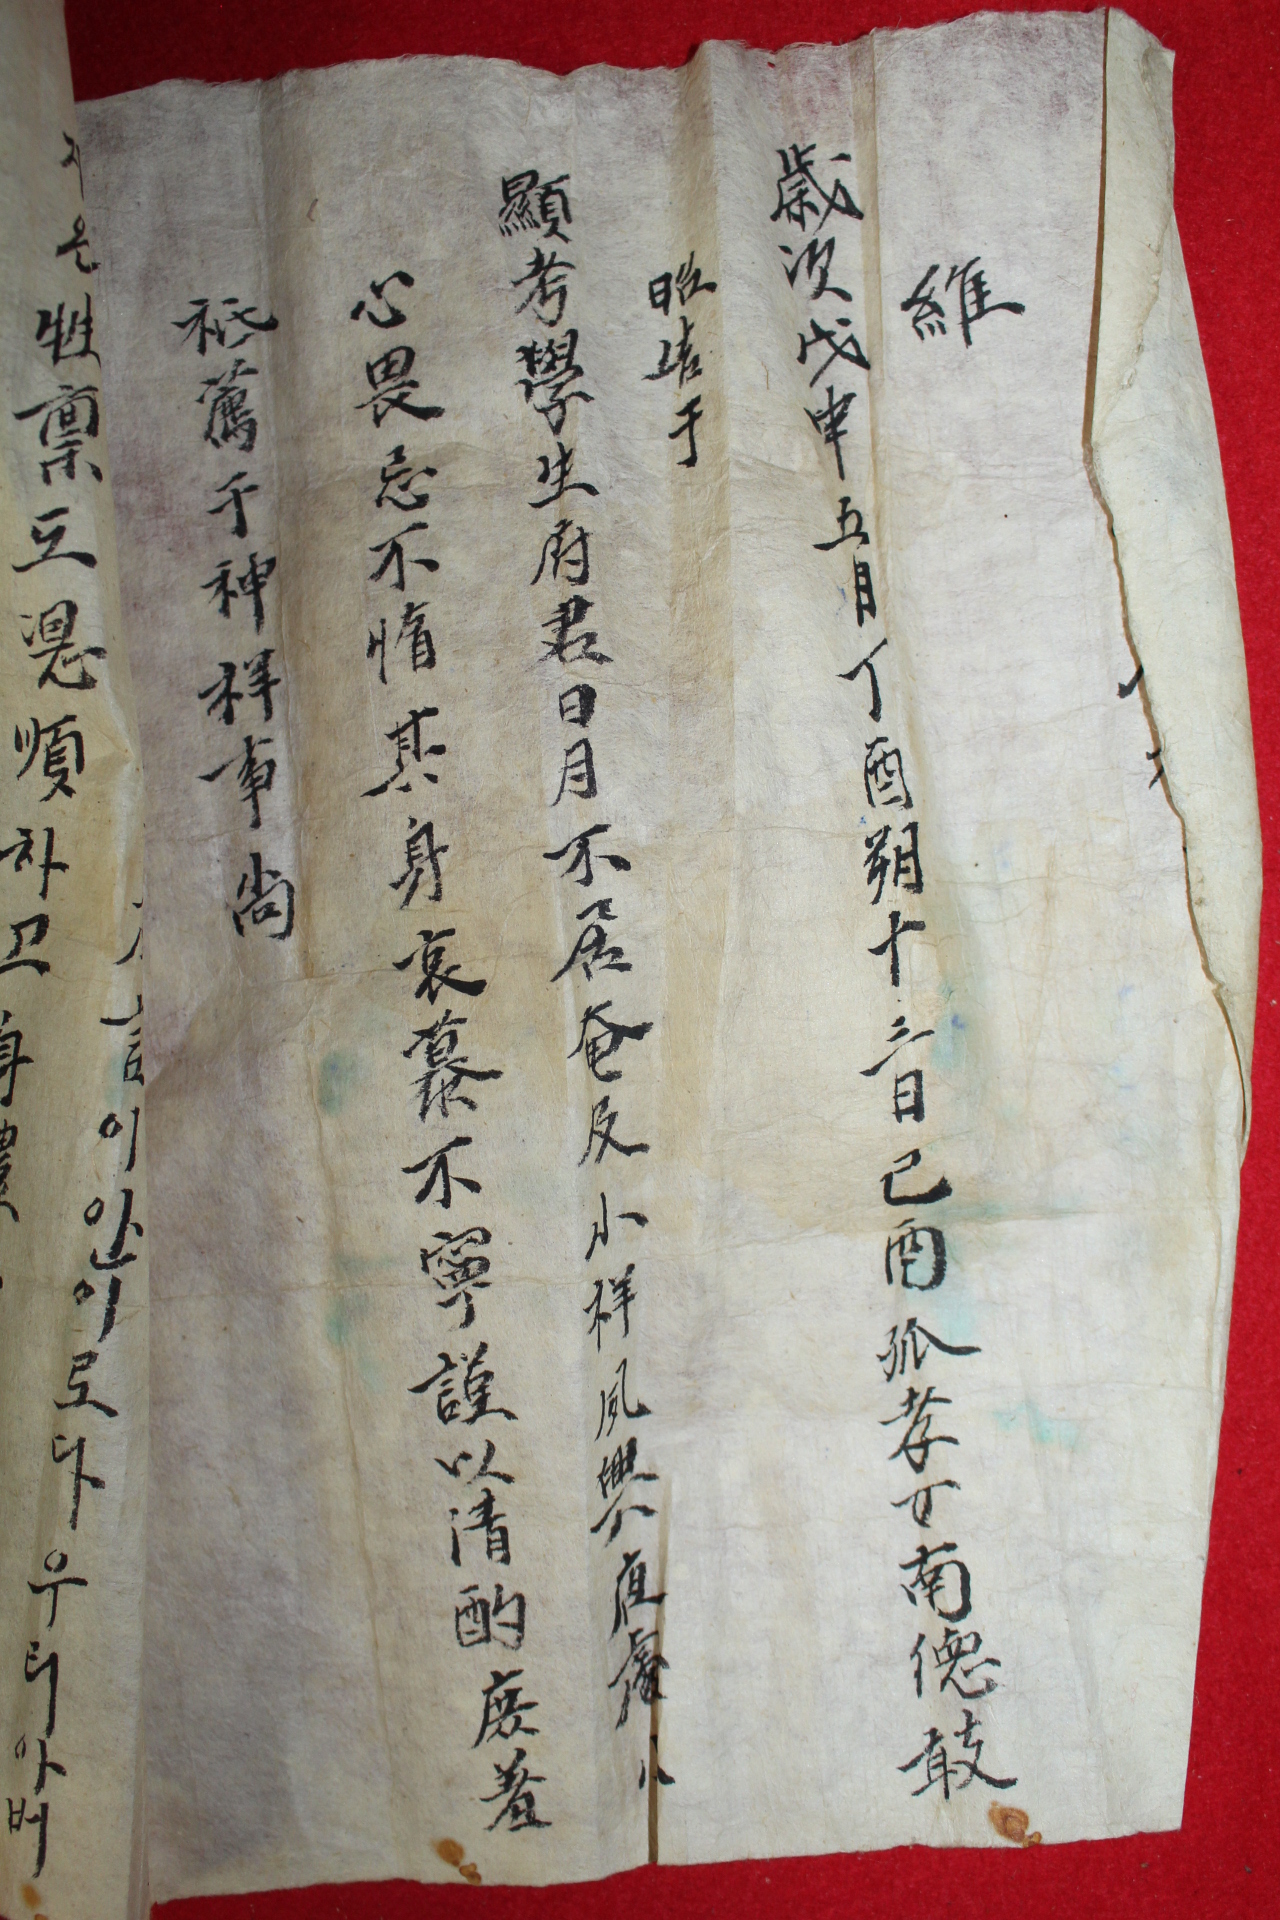 維
歲次戊申五月丁酉朔十三日己酉孤孝子南德敢
昭告于
顯考學生府君日月不居奄及小祥夙興夜處小
心畏忌不惰其身哀慕不寧謹以淸酌庶羞
祗薦于神祥事尙
言이안이로다우리아버
은牲稟도溫順하고